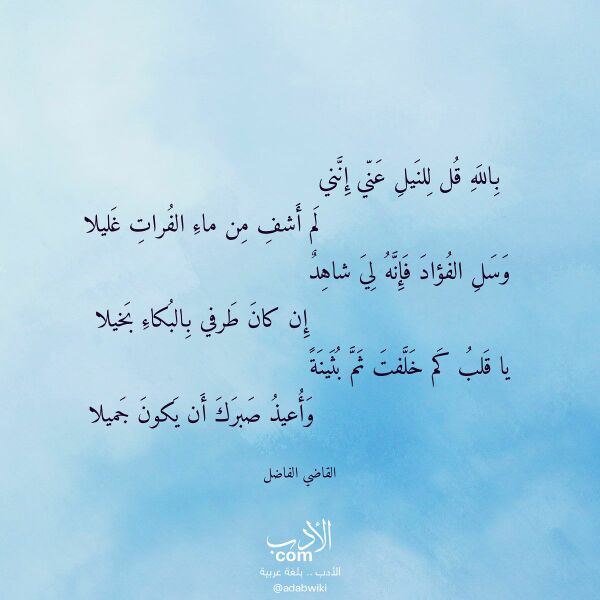 بِاللَهِ قُل لِلنَيلِ عَنّي إِنَّني
لَم أَشفِ مِن ماءِ الفُراتِ غَليلا
وَسَلِ الفُؤادَ فَإِنَّهُ لِيَ شاهِدٌ
إِن كانَ طَرفي بِالبُكاءِ بَخيلا
يا قَلبُ كَم خَلَّفتَ ثَمَّ بُثَينَةً
وَأُعيذُ صَبرَكَ أَن يَكونَ جَميلا
القاضي الفاضل
الأدب
com
الأدب .. بلغة عربية
@adabwiki